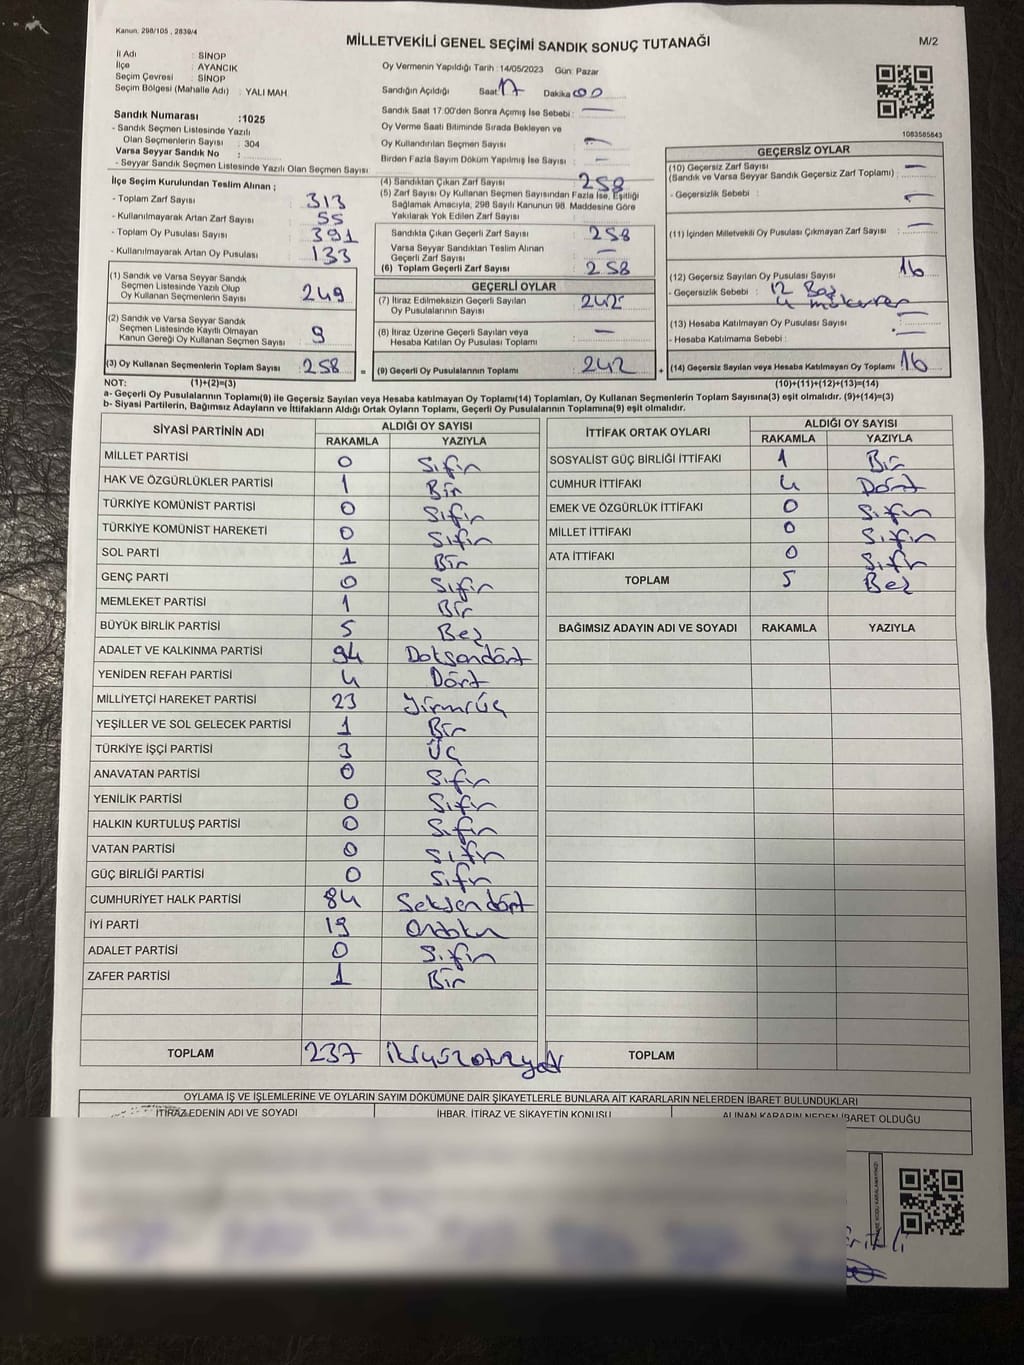 Kanun. 298/105 , 2839/4
MİLLETVEKİLİ GENEL SEÇİMİ SANDIK SONUÇ TUTANAĞI
M/2
İl Adı : SİNOP
İlçe : AYANCIK
Seçim Çevresi : SİNOP
Seçim Bölgesi (Mahalle Adı) : YALI MAH.
Sandık Numarası :1025
- Sandık Seçmen Listesinde Yazılı
Olan Seçmenlerin Sayısı : 304
Varsa Seyyar Sandık No :
- Seyyar Sandık Seçmen Listesinde Yazılı Olan Seçmen Sayısı
Oy Vermenin Yapıldığı Tarih :14/05/2023 Gün: Pazar
Sandığın Açıldığı Saat: 17 Dakika 00
Sandık Saat 17:00'den Sonra Açımış İse Sebebi : —
Oy Verme Saati Bitiminde Sırada Bekleyen ve
Oy Kullandırılan Seçmen Sayısı : —
Birden Fazla Sayım Döküm Yapılmış İse Sayısı : —
1083585843
İlçe Seçim Kurulundan Teslim Alınan ;
- Toplam Zarf Sayısı : 313
- Kullanılmayarak Artan Zarf Sayısı : 55
- Toplam Oy Pusulası Sayısı : 391
- Kullanılmayarak Artan Oy Pusulası : 133
(1) Sandık ve Varsa Seyyar Sandık
Seçmen Listesinde Yazılı Olup
Oy Kullanan Seçmenlerin Sayısı : 249
(2) Sandık ve Varsa Seyyar Sandık
Seçmen Listesinde Kayıtlı Olmayan
Kanun Gereği Oy Kullanan Seçmen Sayısı : 9
(3) Oy Kullanan Seçmenlerin Toplam Sayısı : 258
(4) Sandıktan Çıkan Zarf Sayısı : 258
(5) Zarf Sayısı Oy Kullanan Seçmen Sayısından Fazla İse, Eşitliği
Sağlamak Amacıyla, 298 Sayılı Kanunun 98. Maddesine Göre
Yakılarak Yok Edilen Zarf Sayısı :
Sandıkta Çıkan Geçerli Zarf Sayısı : 258
Varsa Seyyar Sandıktan Teslim Alınan
Geçerli Zarf Sayısı : —
(6) Toplam Geçerli Zarf Sayısı : 258
GEÇERLİ OYLAR
(7) İtiraz Edilmeksizin Geçerli Sayılan
Oy Pusulalarının Sayısı : 242
(8) İtiraz Üzerine Geçerli Sayılan veya
Hesaba Katılan Oy Pusulası Toplamı : —
= (9) Geçerli Oy Pusulalarının Toplamı : 242
GEÇERSİZ OYLAR
(10) Geçersiz Zarf Sayısı
(Sandık ve Varsa Seyyar Sandık Geçersiz Zarf Toplamı) : —
- Geçersizlik Sebebi : —
(11) İçinden Milletvekili Oy Pusulası Çıkmayan Zarf Sayısı : —
(12) Geçersiz Sayılan Oy Pusulası Sayısı : 16
- Geçersizlik Sebebi : 12 Boş
4 mükerrer
(13) Hesaba Katılmayan Oy Pusulası Sayısı : —
- Hesaba Katılmama Sebebi : —
+ (14) Geçersiz Sayılan veya Hesaba Katılmayan Oy Toplamı : 16
NOT: (1)+(2)=(3) (10)+(11)+(12)+(13)=(14)
a- Geçerli Oy Pusulalarının Toplamı(9) ile Geçersiz Sayılan veya Hesaba katılmayan Oy Toplamı(14) Toplamları, Oy Kullanan Seçmenlerin Toplam Sayısına(3) eşit olmalıdır. (9)+(14)=(3)
b- Siyasi Partilerin, Bağımsız Adayların ve İttifakların Aldığı Ortak Oyların Toplamı, Geçerli Oy Pusulalarının Toplamına(9) eşit olmalıdır.
SİYASİ PARTİNİN ADI ALDIĞI OY SAYISI
RAKAMLA YAZIYLA
MİLLET PARTİSİ 0 Sıfır
HAK VE ÖZGÜRLÜKLER PARTİSİ 1 Bir
TÜRKİYE KOMÜNİST PARTİSİ 0 Sıfır
TÜRKİYE KOMÜNİST HAREKETİ 0 Sıfır
SOL PARTİ 1 Bir
GENÇ PARTİ 0 Sıfır
MEMLEKET PARTİSİ 1 Bir
BÜYÜK BİRLİK PARTİSİ 5 Beş
ADALET VE KALKINMA PARTİSİ 94 Doksandört
YENİDEN REFAH PARTİSİ 4 Dört
MİLLİYETÇİ HAREKET PARTİSİ 23 Yirmiüç
YEŞİLLER VE SOL GELECEK PARTİSİ 1 Bir
TÜRKİYE İŞÇİ PARTİSİ 3 Üç
ANAVATAN PARTİSİ 0 Sıfır
YENİLİK PARTİSİ 0 Sıfır
HALKIN KURTULUŞ PARTİSİ 0 Sıfır
VATAN PARTİSİ 0 Sıfır
GÜÇ BİRLİĞİ PARTİSİ 0 Sıfır
CUMHURİYET HALK PARTİSİ 84 Seksendört
İYİ PARTİ 19 Ondokuz
ADALET PARTİSİ 0 Sıfır
ZAFER PARTİSİ 1 Bir
TOPLAM 237 ikiyüzotuzyedi
İTTİFAK ORTAK OYLARI ALDIĞI OY SAYISI
RAKAMLA YAZIYLA
SOSYALİST GÜÇ BİRLİĞİ İTTİFAKI 1 Bir
CUMHUR İTTİFAKI 4 Dört
EMEK VE ÖZGÜRLÜK İTTİFAKI 0 Sıfır
MİLLET İTTİFAKI 0 Sıfır
ATA İTTİFAKI 0 Sıfır
TOPLAM 5 Beş
BAĞIMSIZ ADAYIN ADI VE SOYADI RAKAMLA YAZIYLA
TOPLAM
OYLAMA İŞ VE İŞLEMLERİNE VE OYLARIN SAYIM DÖKÜMÜNE DAİR ŞİKAYETLERLE BUNLARA AİT KARARLARIN NELERDEN İBARET BULUNDUKLARI
İTİRAZ EDENİN ADI VE SOYADI İHBAR, İTİRAZ VE ŞİKAYETİN KONUSU ALINAN KARARIN NEDEN İBARET OLDUĞU